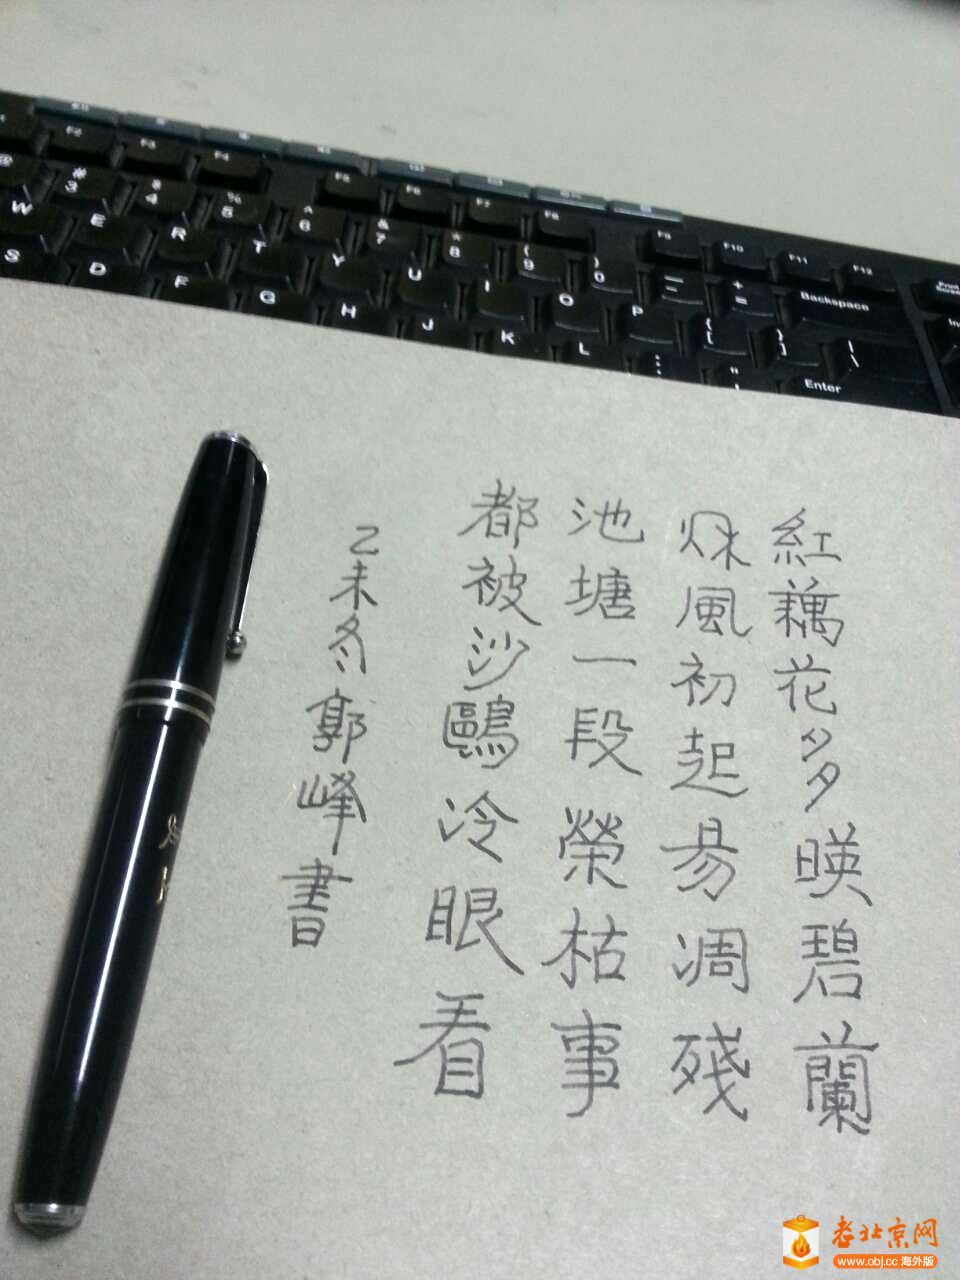 F2 F3 F4 F5 F6 F7 F8 F9 F10 F11 F12
@ # 3 $ 4 % 5 ^ 6 & 7 * 8 ( 9 ) 0 — + = Backspace
W E R T Y U I O P { [ } ] | \
S D F G H J K L : ; " ' Enter
紅藕花多暎碧蘭
秌風初起易凋殘
池塘一段榮枯事
都被沙鷗冷眼看
乙未冬郭峰書
老北京网
www.obj.cc 海外版